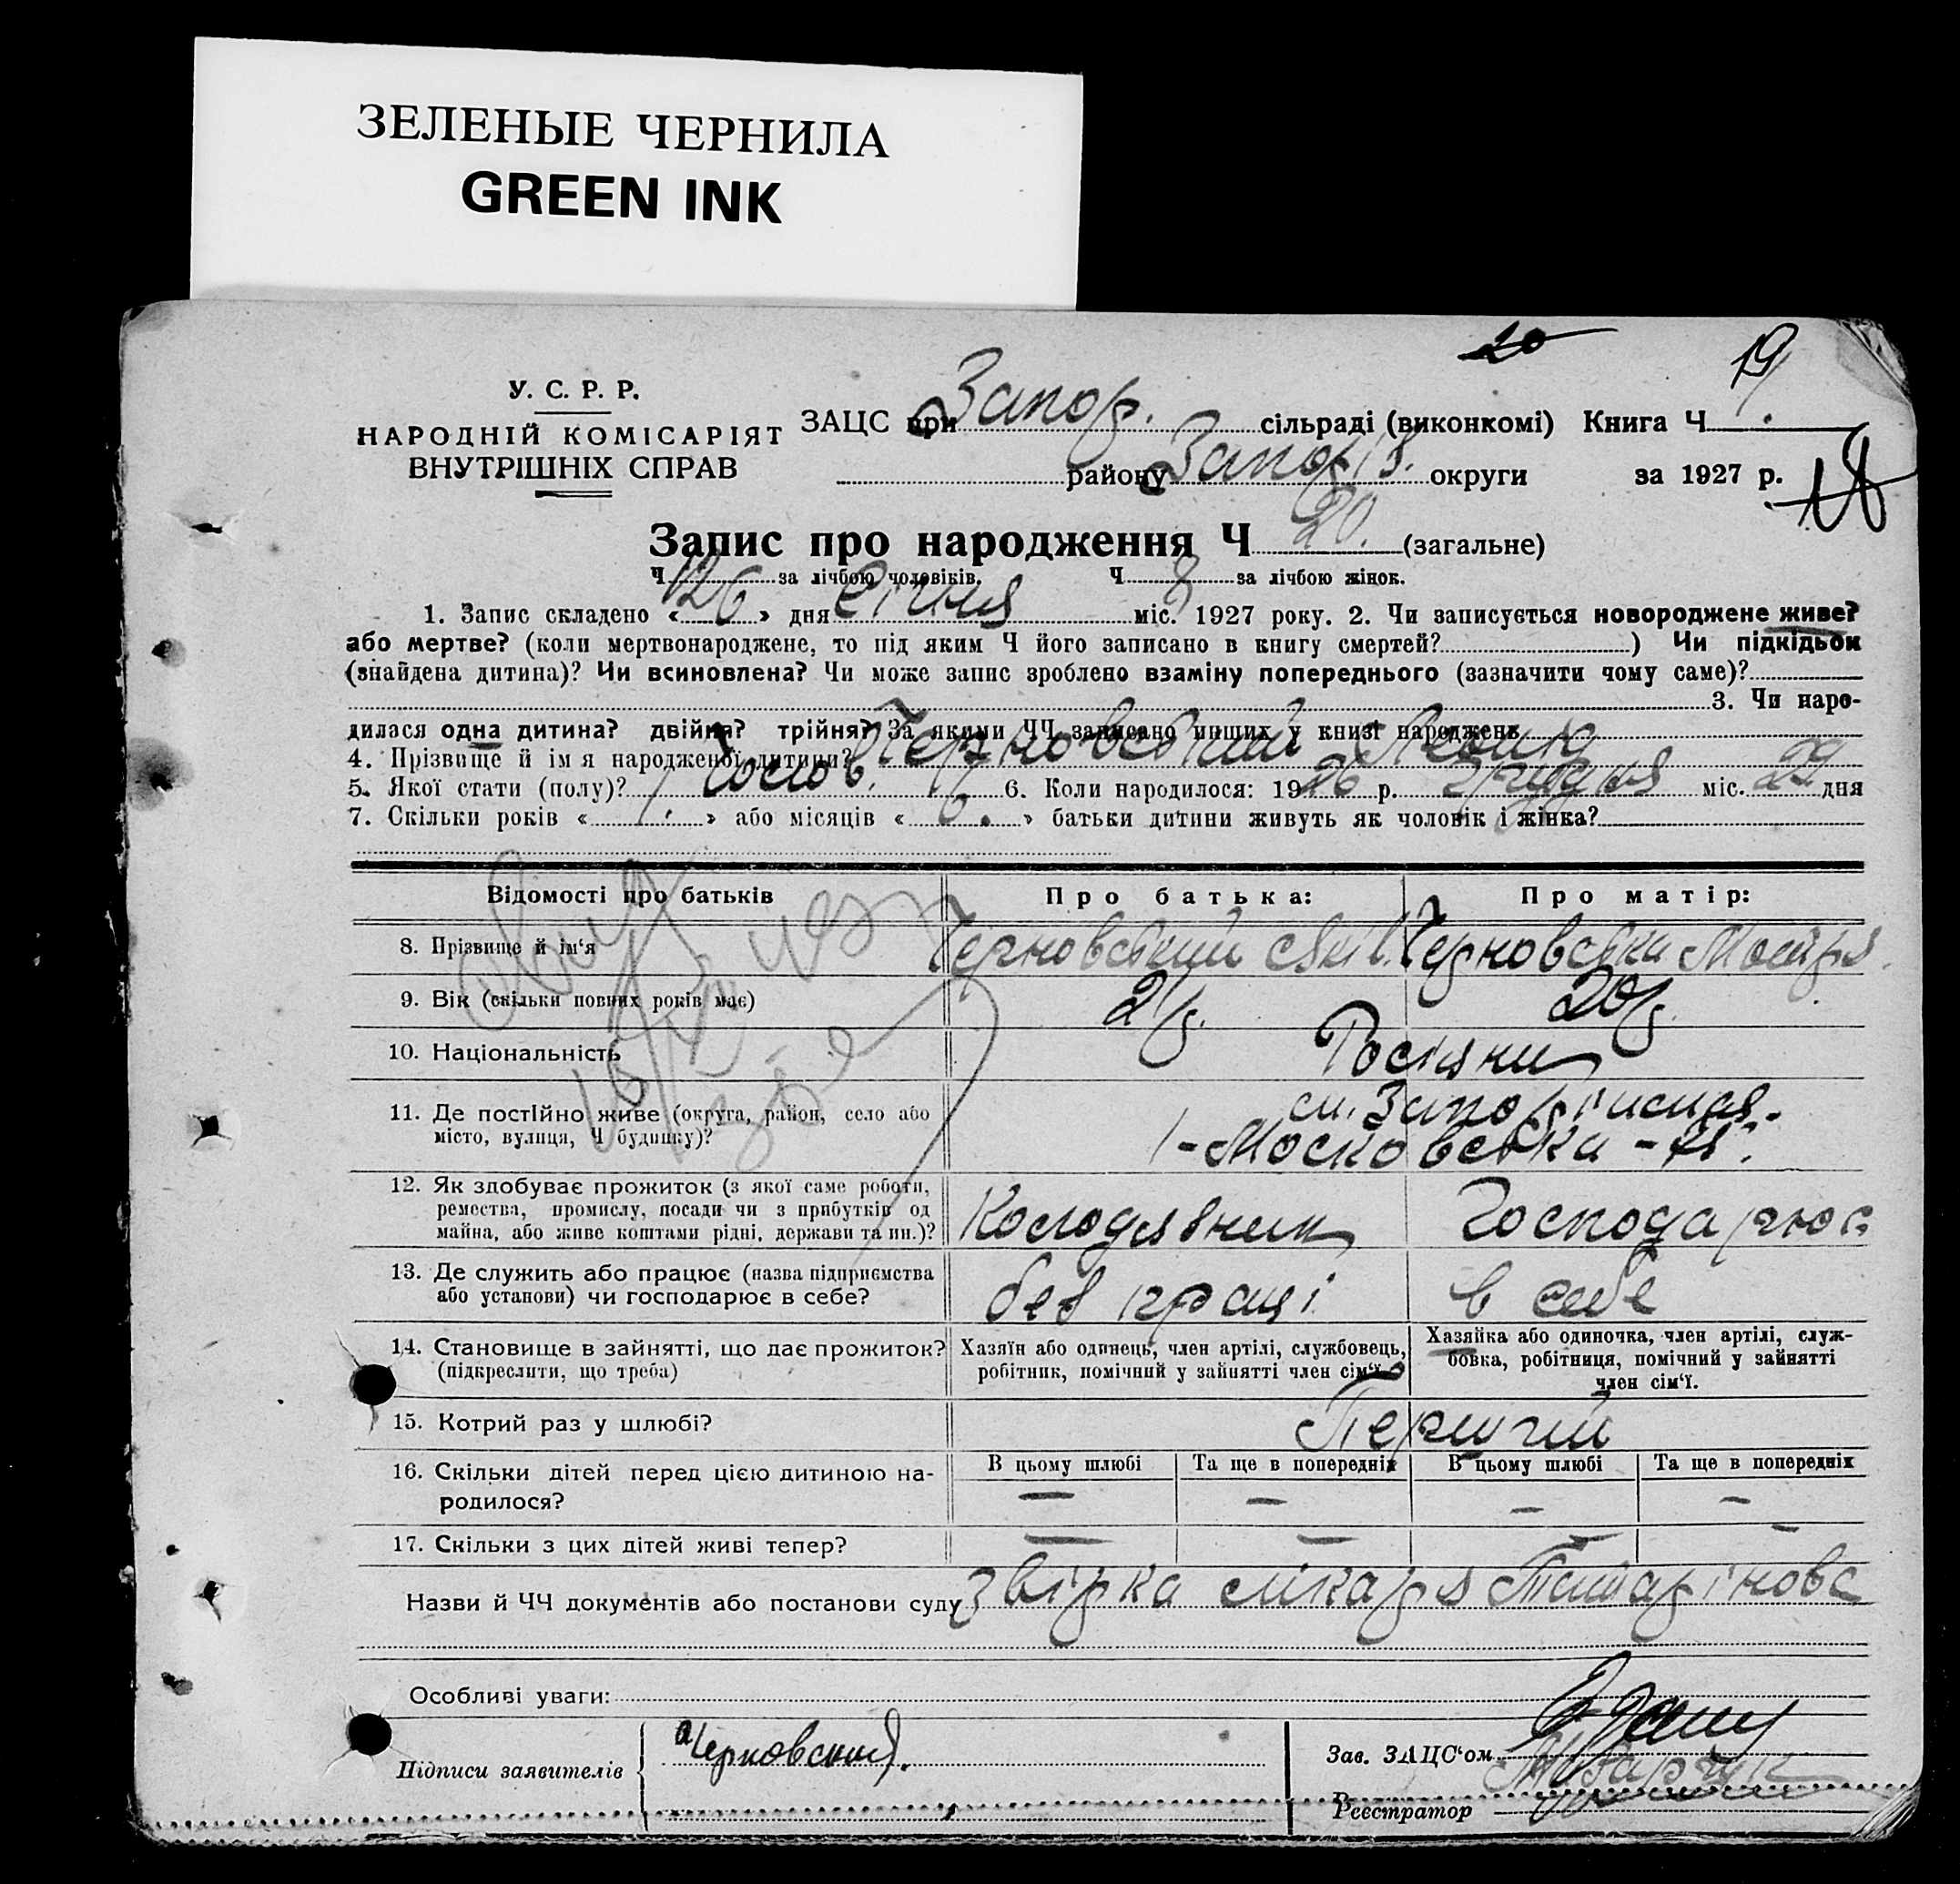 ЗЕЛЕНЫЕ ЧЕРНИЛА
GREEN INK
20 19
У. С. Р. Р.
НАРОДНІЙ КОМІСАРІЯТ
ВНУТРІШНІХ СПРАВ
ЗАЦС при Запор. сільраді (виконкомі) Книга Ч
району Запоріз. округи за 1927 р. 18
Запис про народження Ч 20. (загальне)
Ч 12 за лічбою чоловіків. Ч 8 за лічбою жінок.
1. Запис складено «26» дня Січня міс. 1927 року. 2. Чи записується новороджене живе?
або мертве? (коли мертвонароджене, то під яким Ч його записано в книгу смертей?) Чи підкідьок
(знайдена дитина)? Чи всиновлена? Чи може запис зроблено взаміну попереднього (зазначити чому саме)?
3. Чи наро-
дилася одна дитина? двійня? трійня? За якими ЧЧ записано инших у книзі народжень
4. Прізвище й ім'я народженої дитини? Черновський
5. Якої стати (полу)? Чолов. 6. Коли народилося: 1926 р. Грудня міс. 29 дня
7. Скільки років « 1. » або місяців « 6. » батьки дитини живуть як чоловік і жінка?
Відомості про батьків Про батька: Про матір:
8. Прізвище й ім'я Черновський Яків. Черновська Мотря.
9. Вік (скільки повних років має) 21 р. 20 р.
10. Національність Росіяни
11. Де постійно живе (округа, район, село або
місто, вулиця, Ч будинку)?
1-Московська
12. Як здобуває прожиток (з якої саме роботи,
ремества, промислу, посади чи з прибутків од
майна, або живе коштами рідні, держави та ин.)?
Колодязник Господарює
13. Де служить або працює (назва підприємства
або установи) чи господарює в себе?
без праці в себе
14. Становище в зайнятті, що дає прожиток?
(підкреслити, що треба)
Хазяїн або одинець, член артілі, службовець,
робітник, помічний у зайнятті член сім'ї.
Хазяйка або одиночка, член артілі, служ-
бовка, робітниця, помічний у зайнятті
член сім'ї.
15. Котрий раз у шлюбі? Перший
16. Скільки дітей перед цією дитиною на-
родилося?
В цьому шлюбі Та ще в попередніх В цьому шлюбі Та ще в попередніх
— — — —
17. Скільки з цих дітей живі тепер? — — — —
Назви й ЧЧ документів або постанови суду звірка лікаря Татарінова
Особливі уваги:
Підписи заявителів Черновский.
Зав. ЗАЦС'ом
Реєстратор